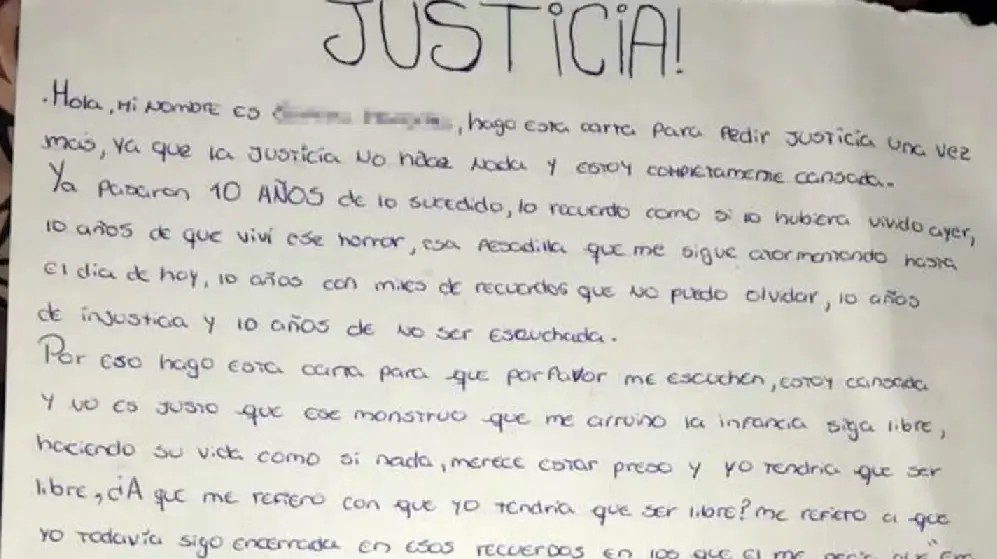 JUSTICIA!
. Hola, Mi Nombre es , hago esta carta para pedir justicia una vez
más, ya que la justicia no hace nada y estoy completamente cansada.
Ya pasaron 10 AÑOS de lo sucedido, lo recuerdo como si lo hubiera vivido ayer,
10 años de que viví ese horror, esa pesadilla que me sigue atormentando hasta
el día de hoy, 10 años con miles de recuerdos que no puedo olvidar, 10 años
de injusticia y 10 años de no ser escuchada.
Por eso hago esta carta para que porfavor me escuchen, estoy cansada
y no es justo que ese monstruo que me arruino la infancia siga libre,
haciendo su vida como si nada, merece estar preso y yo tendria que ser
libre, ¿A que me refiero con que yo tendria que ser libre? me refiero a que
yo todavía sigo encerrada en esos recuerdos en los que el me